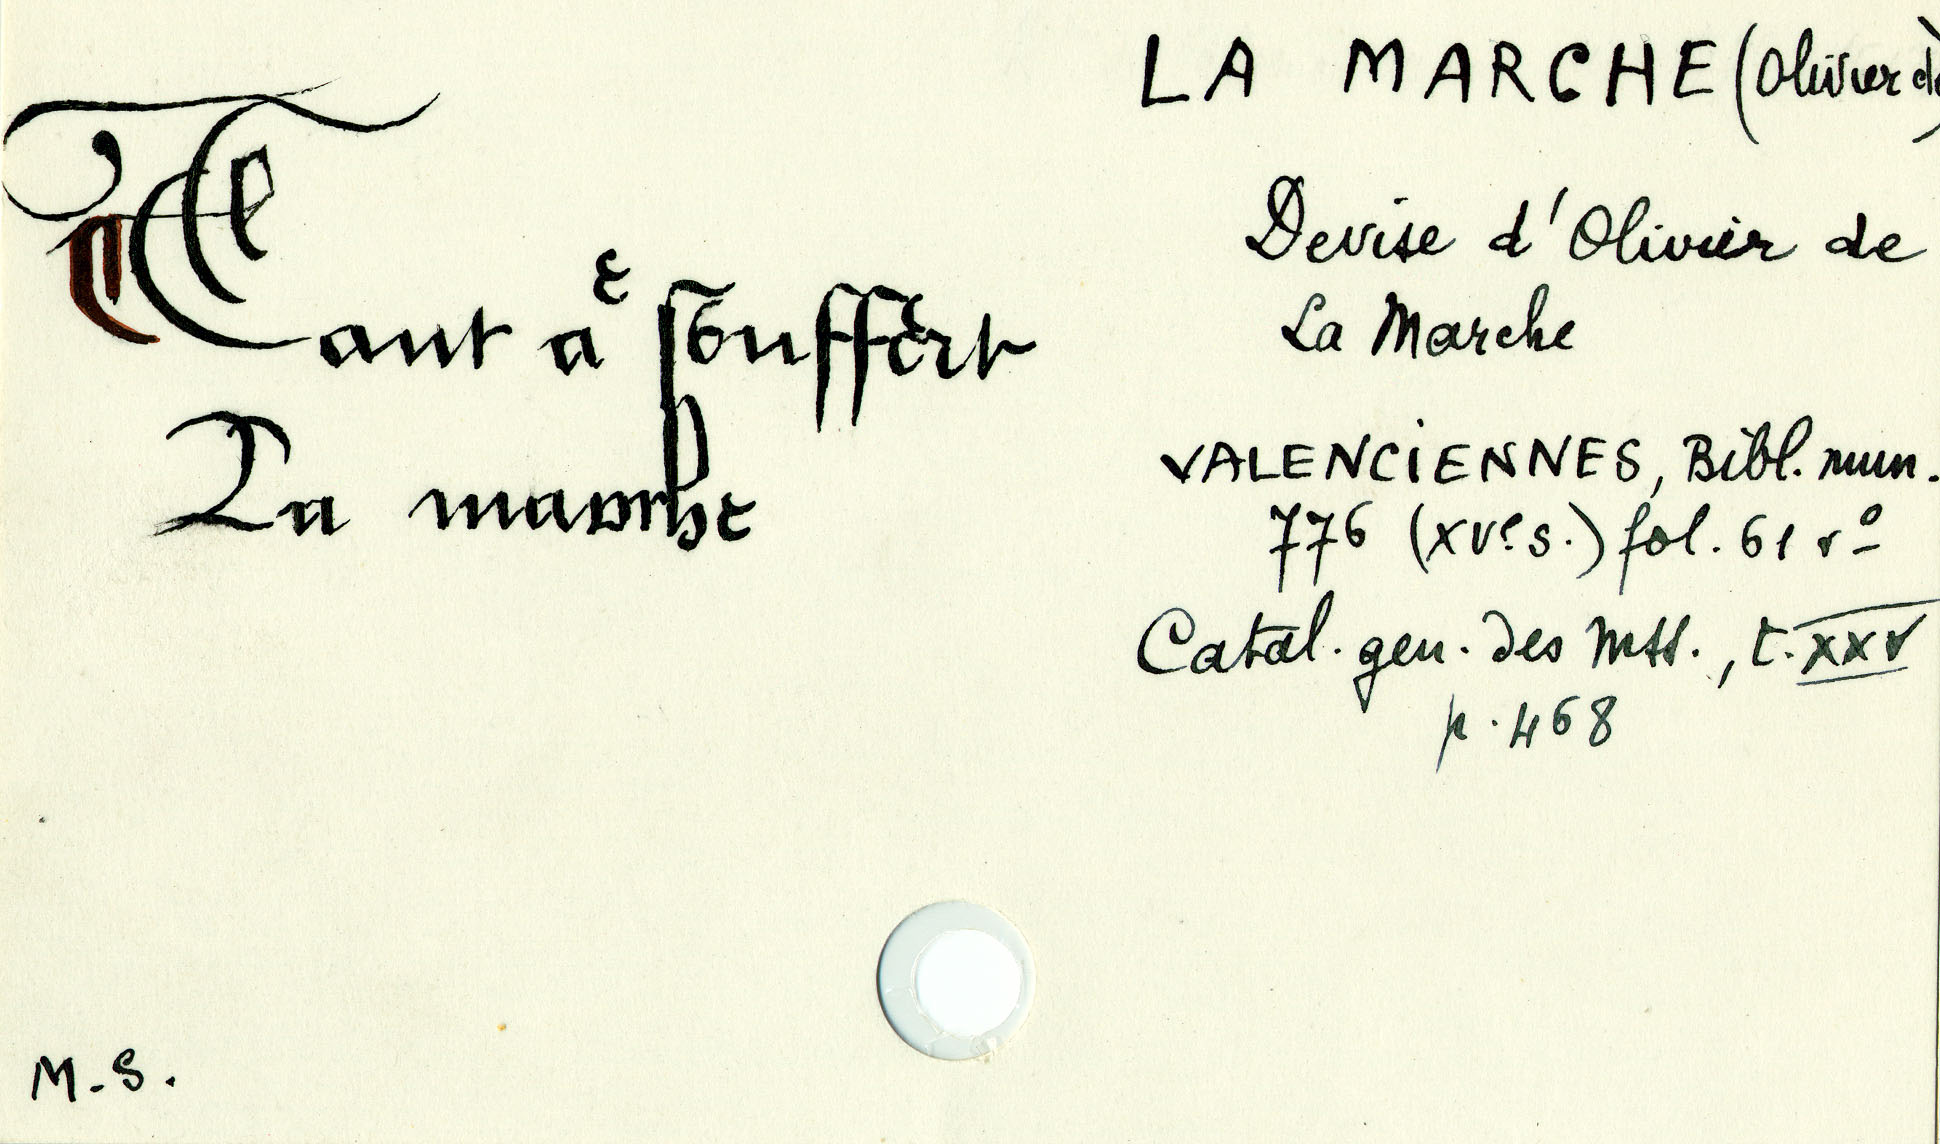 LA MARCHE (Olivier de)
Devise d'Olivier de
La Marche
VALENCIENNES, Bibl. mun.
776 (XVe s.) fol. 61 rº
Catal. gen. des Mss., t. XXV
p. 468
Tant a souffert
La marche
M.S.